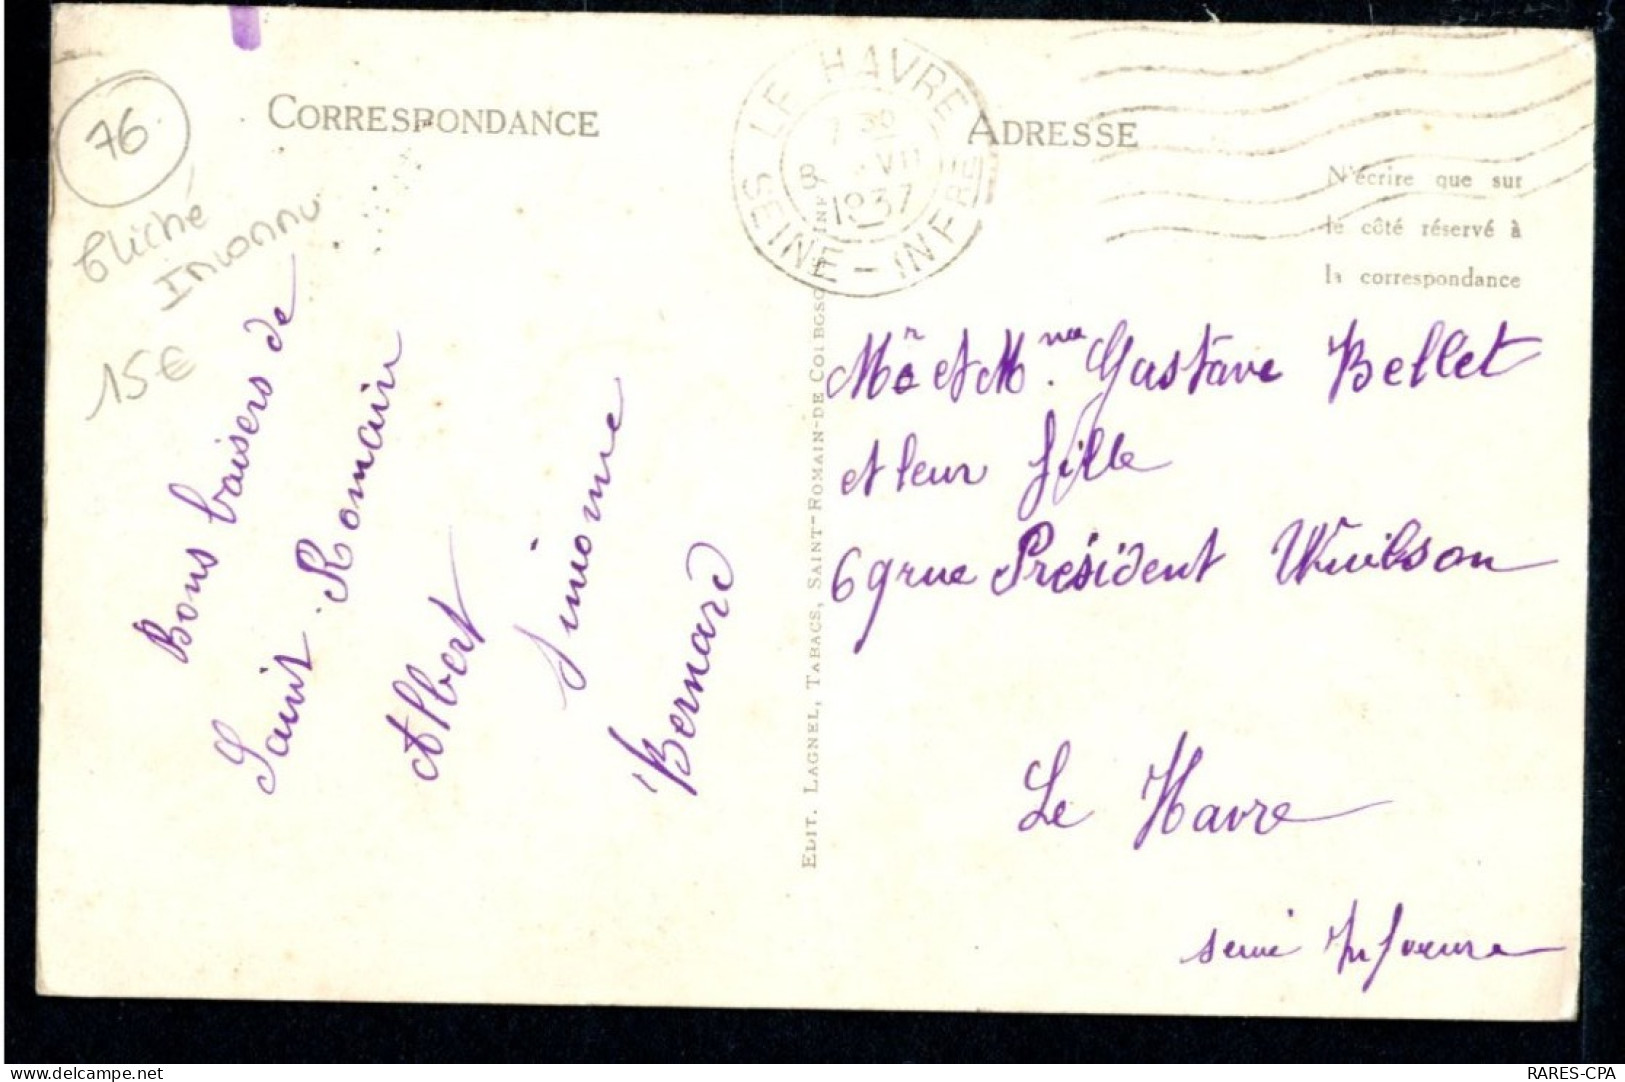 76
Cliché
Inconnu
15€
CORRESPONDANCE
Bons baisers de
Saint-Romain
Albert
Simonne
Bernard
EDIT. LAGNEL, TABACS, SAINT-ROMAIN-DE-COLBOSC
LE HAVRE
1937
SEINE-INFRE
ADRESSE
N'écrire que sur
le côté réservé à
la correspondance
Mr et Mme Gustave Bellet
et leur fille
69 rue Président Wuilson
Le Havre
seine Inferieure
RARES-CPA
delcampe.net